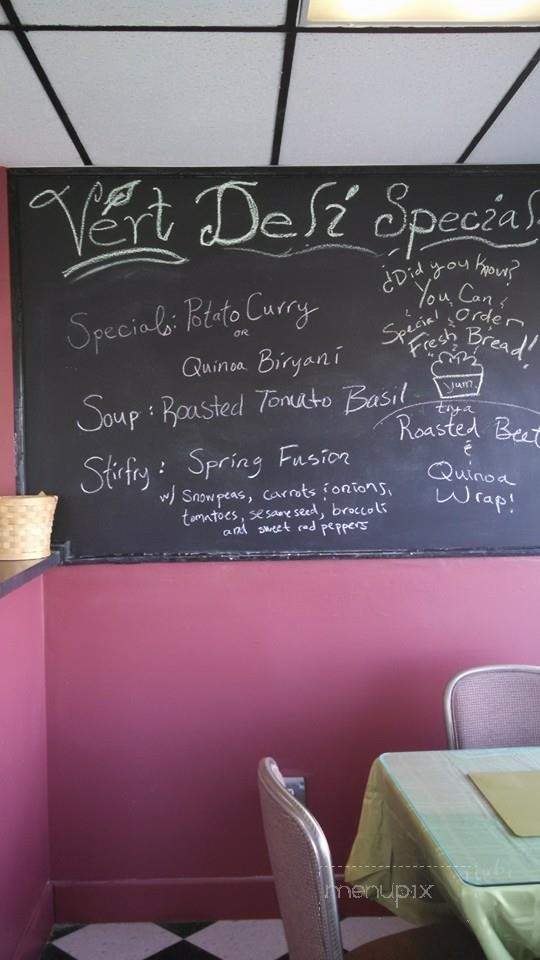 Vert Deli Special
Specials: Potato Curry
OR
Quinoa Biryani
Soup: Roasted Tomato Basil
Stirfry: Spring Fusion
w/ Snowpeas, carrots, onions,
tomatoes, sesame seed, broccoli
and sweet red peppers
¿Did you Know?
You Can
Special Order
Fresh Bread!
yum.
try a
Roasted Beet
&
Quinoa
Wrap!
menupix